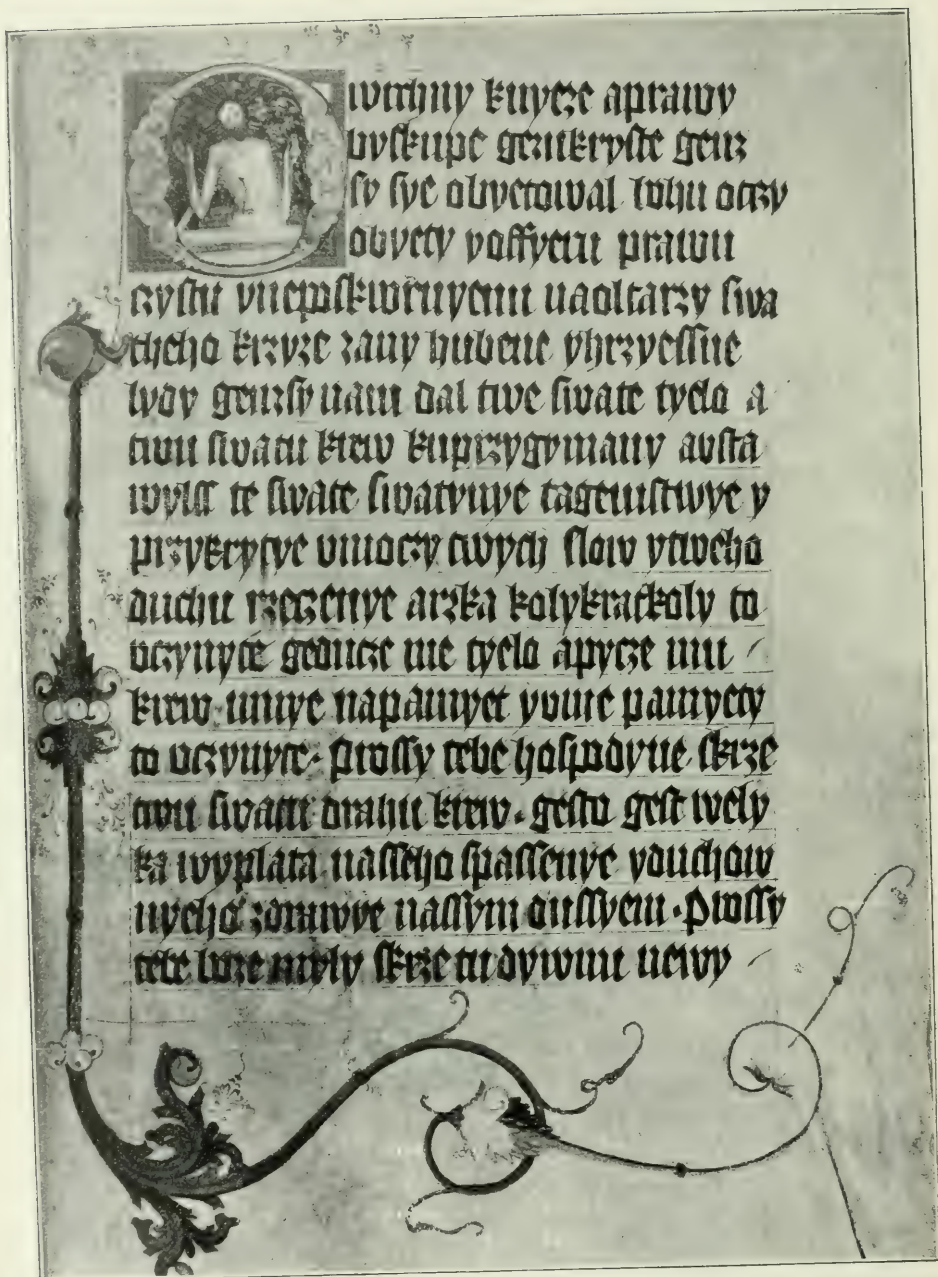 wrchny knyeze aprawy
byskupe gezukryste genz
sy sye obyetowal bohu otczy
obyety yoffyeru prawu
czystu yneposkwrnyenu naoltarzy swa
theho krzyze zany hubene yhrzyessne
lydy genzsy nam dal twe swate tyelo a
twu swatu krew kuprzygymany austa
wylss te swate swatynye tagemstwye y
przykrytye vmoczy twych slow ytweho
duchu rzeczenye arzka kolykratkoly to
uczynyte geducze me tyelo apygze mu
krew mnye napamyet ydme pamyety
to uczynyte · prossy tebe hospodyne skrze
twu swatu drahu krew · gesto gest wely
ka wyplata nasseho spassenye yduchow
nyeho zdrawye nassym dussyem · prossy
tebe boze myly skrze tu dywnu newy